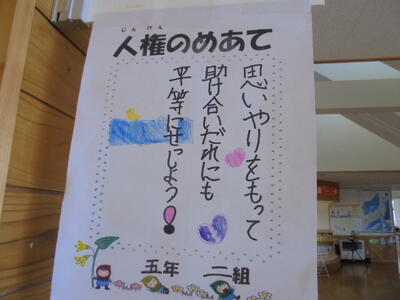 じん けん
人権のめあて
思いやりをもって
助け合いだれにも
平等にせっしよう!
五年 二組